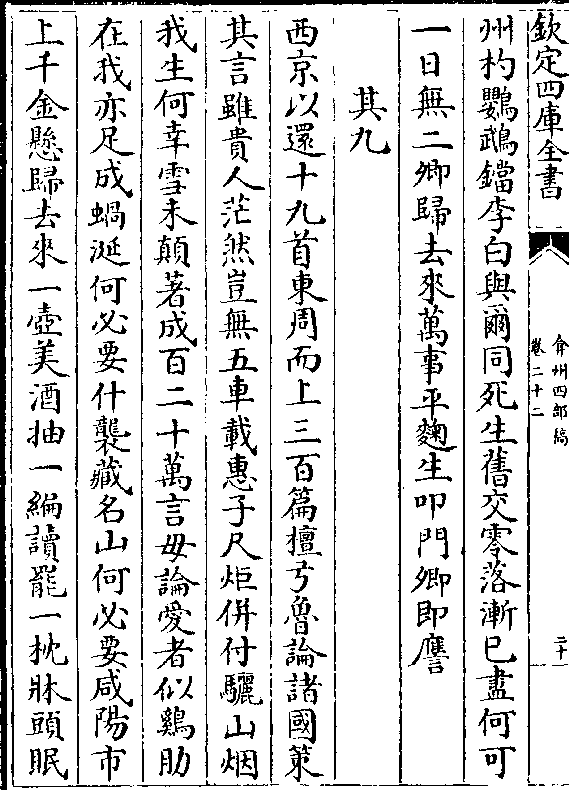 欽定四庫全書
弇州四部稿
卷二十二
二十
州杓鸚鵡鐺李白與爾同死生舊交零落漸已盡何可
一日無二卿歸去來萬事平麴生叩門卿即譍
其九
西京以還十九首東周而上三百篇檀弓魯論諸國策
其言雖貴人茫然豈無五車載惠子尺炬併付驪山烟
我生何幸雪未顛著成百二十萬言毋論愛者似鷄肋
在我亦足成蝸涎何必要什襲藏名山何必要咸陽市
上千金懸歸去來一壺美酒抽一編讀罷一枕牀頭眠